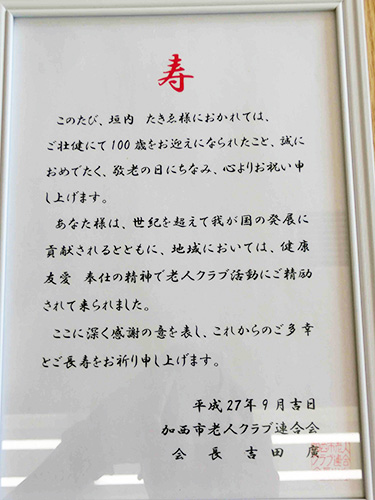 寿
このたび、垣内　たきゑ様におかれては、
ご壮健にて100歳をお迎えになられたこと、誠に
おめでたく、敬老の日にちなみ、心よりお祝い申
し上げます。
あなた様は、世紀を超えて我が国の発展に
貢献されるとともに、地域においては、健康
友愛　奉仕の精神で老人クラブ活動にご精励
されて来られました。
ここに深く感謝の意を表し、これからのご多幸
とご長寿をお祈り申し上げます。
平成27年9月吉日
加西市老人クラブ連合会
会長　吉田　廣